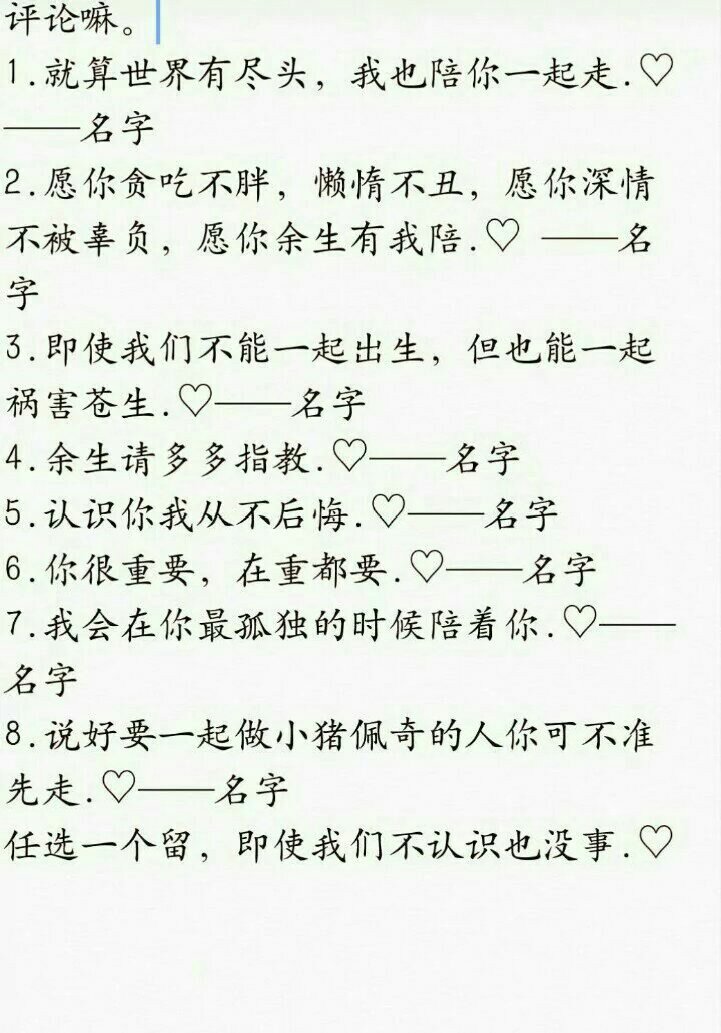 评论嘛。
1.就算世界有尽头，我也陪你一起走.♡
——名字
2.愿你贪吃不胖，懒惰不丑，愿你深情
不被辜负，愿你余生有我陪.♡ ——名
字
3.即使我们不能一起出生，但也能一起
祸害苍生.♡——名字
4.余生请多多指教.♡——名字
5.认识你我从不后悔.♡——名字
6.你很重要，在重都要.♡——名字
7.我会在你最孤独的时候陪着你.♡——
名字
8.说好要一起做小猪佩奇的人你可不准
先走.♡——名字
任选一个留，即使我们不认识也没事.♡